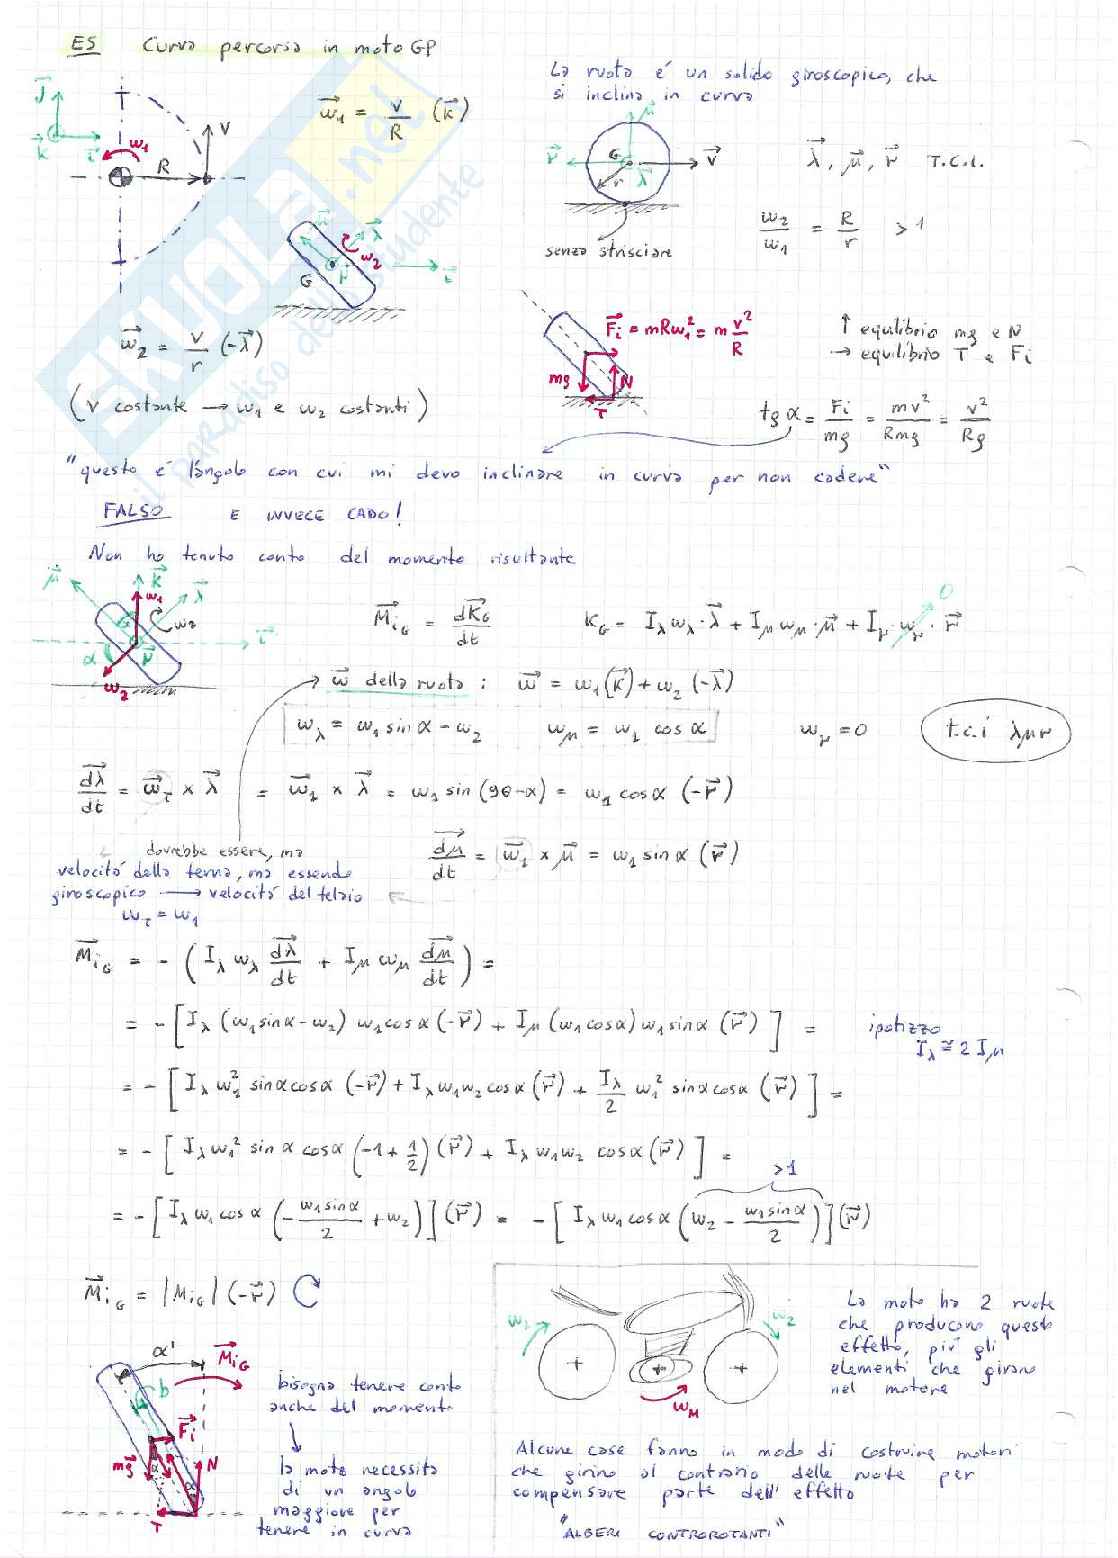 ES Curva percorsa in moto GP
La ruota é un solido giroscopico, che
si inclina in curva
J
k
i
ω₁
R
v
ω₁ = v/R (k)
μ
ν
G
v
λ
r
λ, μ, ν T.C.I.
senza strisciare
ω₂/ω₁ = R/r > 1
μ
λ
ω₂
G
ν
i
ω₂ = v/r (-λ)
Fi = mRω₁² = m v²/R
mg
N
T
↑ equilibrio mg e N
→ equilibrio T e Fi
(v costante → ω₁ e ω₂ costanti)
tg α = Fi/mg = mv²/Rmg = v²/Rg
"questo é l'angolo con cui mi devo inclinare in curva per non cadere"
FALSO E INVECE CADO!
Non ho tenuto conto del momento risultante
μ
k
ω₁
λ
G
ω₂
i
α
ν
ω₂
MiG = dKG/dt
KG = Iλ ωλ·λ + Iμ ωμ·μ + Iν·ων·ν 0
→ ω della ruota: ω = ω₁(k) + ω₂(-λ)
ωλ = ω₁ sin α - ω₂ ωμ = ω₁ cos α ων = 0 t.c.i λμν
dλ/dt = ωτ × λ = ω₁ × λ = ω₁ sin (90-α) = ω₁ cosα (-ν)
dovrebbe essere, ma
velocitá della terna, ma essendo
giroscopico → velocitá del telaio
ωτ = ω₁
dμ/dt = ω₁ × μ = ω₁ sin α (ν)
MiG = - (Iλ ωλ dλ/dt + Iμ ωμ dμ/dt) =
= - [Iλ (ω₁ sinα - ω₂) ω₁cosα (-ν) + Iμ (ω₁cosα) ω₁ sinα (ν)] = ipotizzo
Iλ ≅ 2 Iμ
= - [Iλ ω₁² sinαcosα (-ν) + Iλ ω₁ω₂ cosα (ν) + Iλ/2 ω₁² sinαcosα (ν)] =
= - [Iλ ω₁² sin α cosα (-1 + 1/2) (ν) + Iλ ω₁ω₂ cosα (ν)] =
>1
= - [Iλ ω₁ cos α (- ω₁sinα/2 + ω₂)] (ν) = - [Iλ ω₁ cosα (ω₂ - ω₁sinα/2)] (ν)
MiG = |MiG| (-ν)
α'
MiG
b
Fi
mg
α
α
N
T
bisogna tenere conto
anche del momento
la moto necessita
di un angolo
maggiore per
tenere in curva
ω₂
ω₂
ωM
La moto ha 2 ruote
che producono questo
effetto, piú gli
elementi che girano
nel motore
Alcune case fanno in modo di costruire motori
che girino al contrario delle ruote per
compensare parte dell'effetto
"ALBERI CONTROROTANTI"
SKUOLA.net
il paradiso dello studente